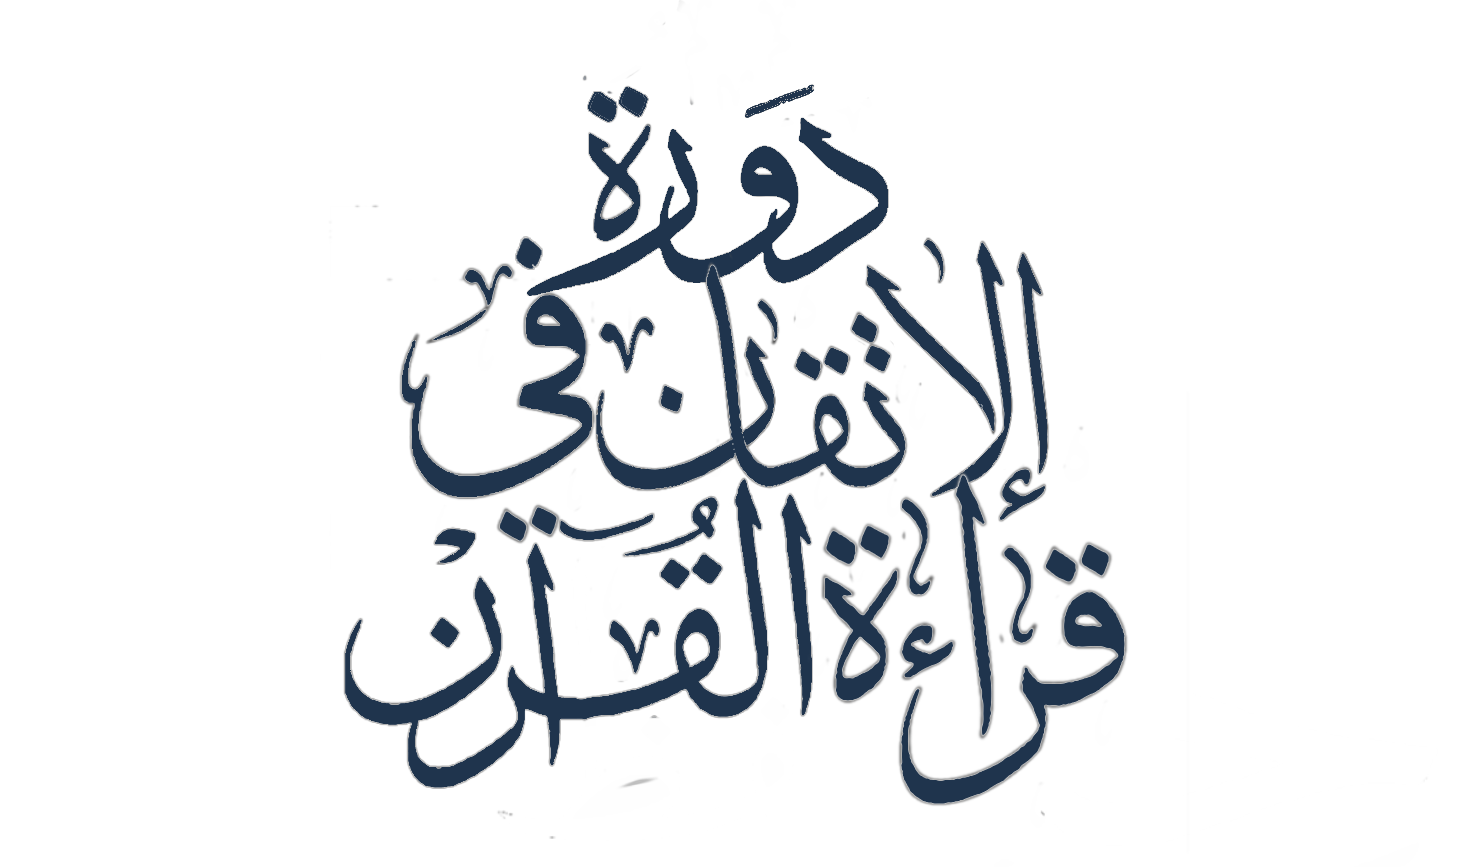 دَورة
الإتقان في
قراءة القُرآن